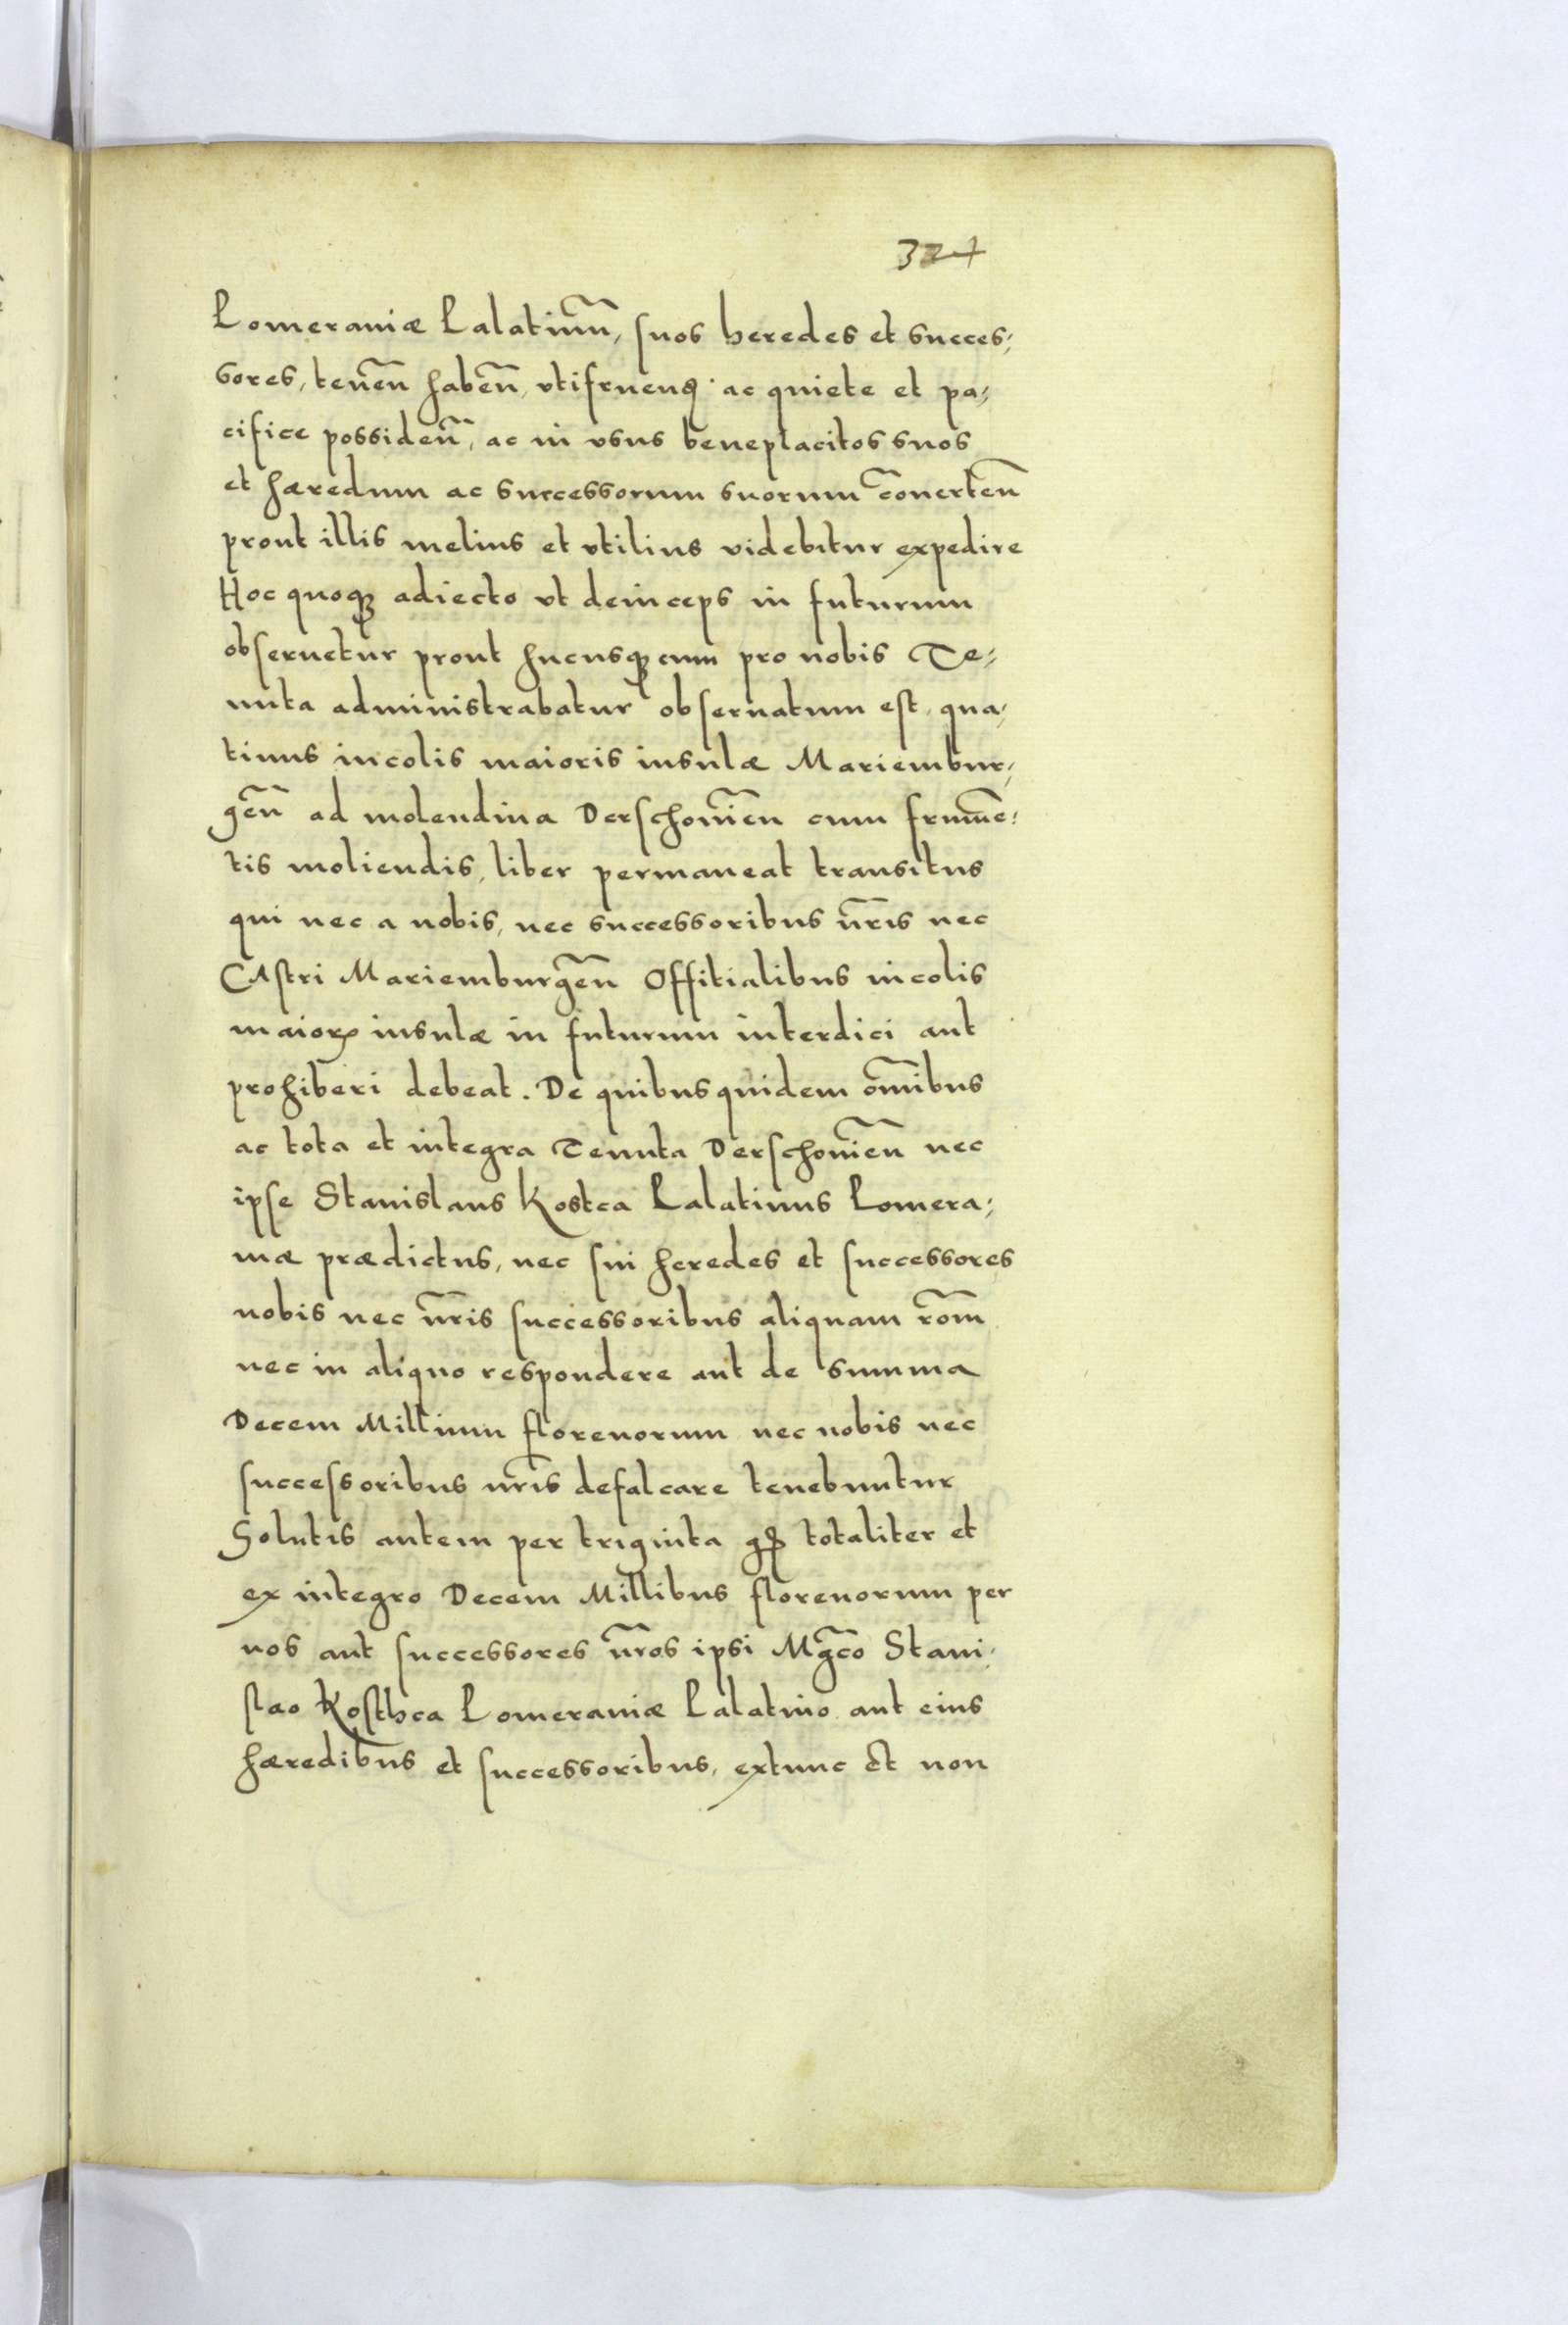 324
Pomeraniæ Palatinũ, suos heredes et succes⸗
sores, tenẽn habẽn, vtifruenꝗ ac quiete et pa⸗
cifice possideñ, ac in vsus beneplacitos suos
et hæredum ac successorum suorum cõuertẽn
prout illis melius et vtilius videbitur expedire
Hoc quoqꝫ adiecto vt deinceps in futurum
obseruetur prout hucusqꝫ cum pro nobis Te⸗
nuta administrabatur obseruatum est, qua⸗
tinus incolis maioris insulæ Mariembur⸗
gẽn ad molendina Derschouiẽn cum frumẽ⸗
tis moliendis, liber permaneat transitus
qui nec a nobis, nec successoribus nr̃is nec
CAstri Mariemburgẽn Offitialibus incolis
maioꝝ insulæ in futurum interdici aut
prohiberi debeat. De quibus quidem om̃ibus
ac tota et integra Tenuta Derschouiẽn nec
ipse Stanislaus Kostca Palatinus Pomera⸗
niæ prædictus, nec sui heredes et successores
nobis nec nr̃is successoribus aliquam rõm
nec in aliquo respondere aut de summa
Decem Millium florenorum nec nobis nec
successoribus nr̃is defalcare tenebuntur
Solutis autem per triginta gꝝ totaliter et
ex integro Decem Millibus florenorum per
nos aut successores nr̃os ipsi Mg̃co Stani⸗
slao Kosthca Pomeraniæ Palatino aut eius
hæredibus et successoribus, extunc et non